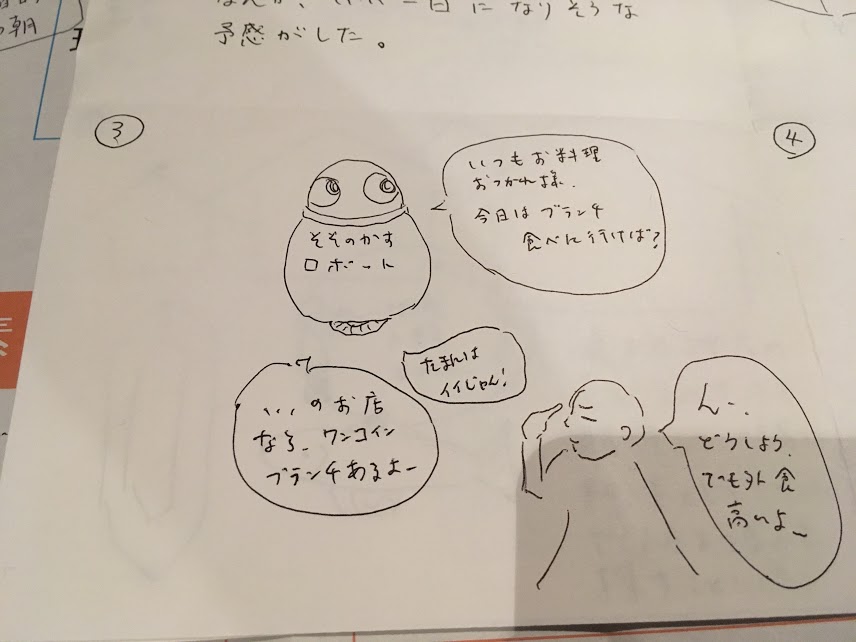 朝
なりそうな
予感がした。
3
4
いつもお料理
おつかれ様.
今日は ブランチ
食べに行けば?
そそのかす
ロボット
たまには
イイじゃん!
、、、のお店
なら、ワンコイン
ブランチあるよー
んー、
どうしよう、
でも外食
高いよー